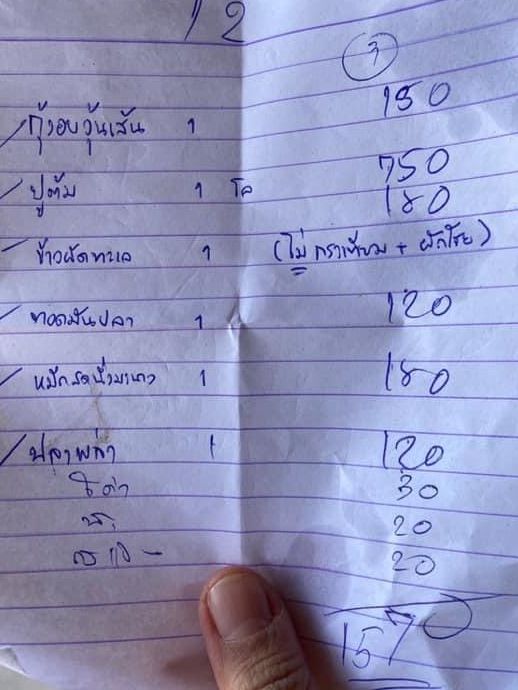 12
3
กุ้งอบวุ้นเส้น 1 150
ปูต้ม 1 โล 750
180
ข้าวผัดทะเล 1 (ไม่ กระเทียม + ผักชี)
ทอดมันปลา 1 120
หมึกสดนึ่งมะนาว 1 180
ปลาพล่า 1 120
โค้ก 30
20
20
1570